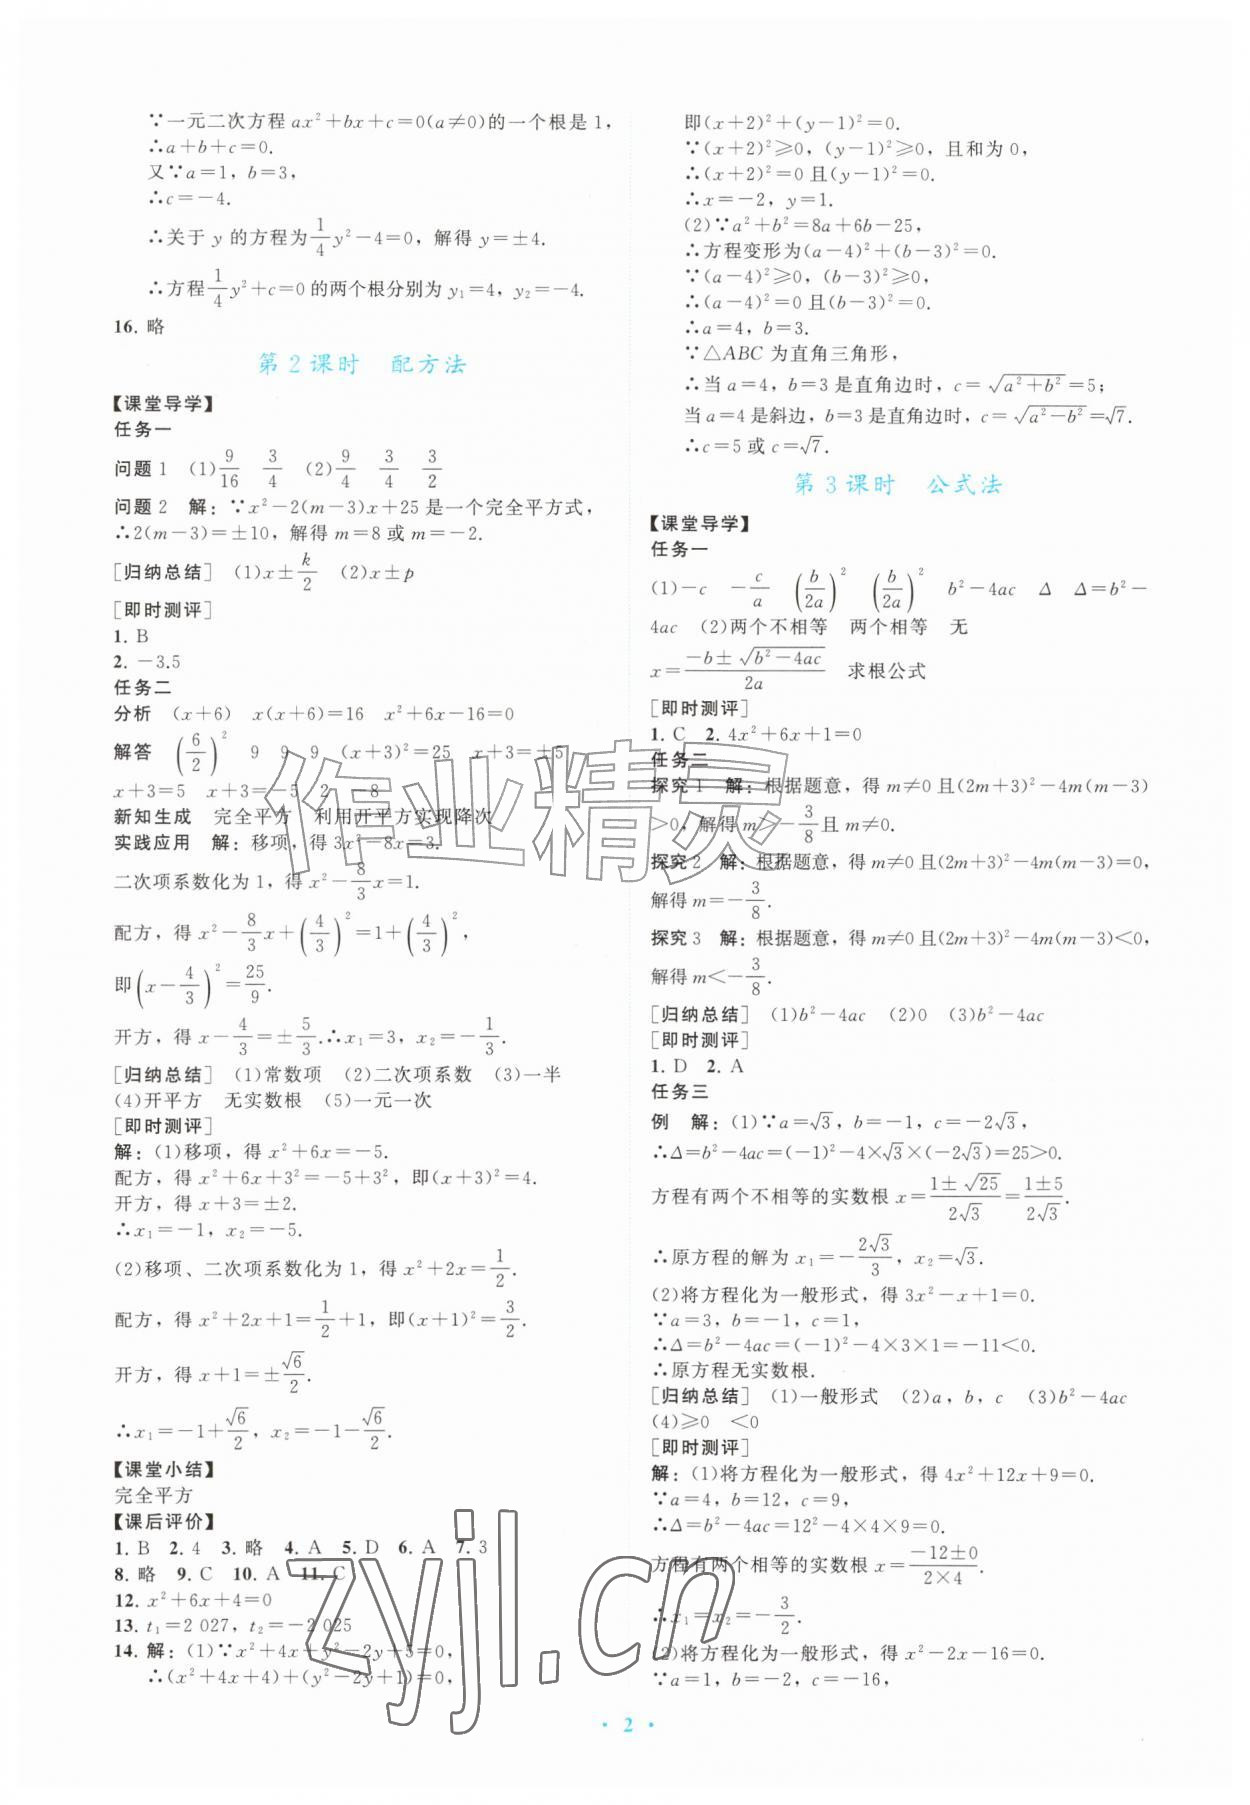 ∵一元二次方程 ax²+bx+c=0(a≠0)的一个根是 1,
∴a+b+c=0.
又∵a=1, b=3,
∴c=-4.
∴关于 y 的方程为1/4y²-4=0, 解得 y=±4.
∴方程1/4y²+c=0 的两个根分别为 y₁=4, y₂=-4.
16. 略
第 2 课时 配方法
【课堂导学】
任务一
问题 1 (1)9/16 3/4 (2)9/4 3/4 3/2
问题 2 解:∵x²-2(m-3)x+25 是一个完全平方式,
∴2(m-3)=±10, 解得 m=8 或 m=-2.
[归纳总结] (1)x±k/2 (2)x±p
[即时测评]
1. B
2. -3.5
任务二
分析 (x+6) x(x+6)=16 x²+6x-16=0
解答 (6/2)² 9 9 9 (x+3)²=25 x+3=±5
x+3=5 x+3=-5 2 -8
新知生成 完全平方 利用开平方实现降次
实践应用 解:移项,得 3x²-8x=3.
二次项系数化为 1,得 x²-8/3x=1.
配方,得 x²-8/3x+(4/3)²=1+(4/3)²,
即(x-4/3)²=25/9.
开方,得 x-4/3=±5/3.∴x₁=3, x₂=-1/3.
[归纳总结] (1)常数项 (2)二次项系数 (3)一半
(4)开平方 无实数根 (5)一元一次
[即时测评]
解:(1)移项,得 x²+6x=-5.
配方,得 x²+6x+3²=-5+3²,即(x+3)²=4.
开方,得 x+3=±2.
∴x₁=-1, x₂=-5.
(2)移项、二次项系数化为 1,得 x²+2x=1/2.
配方,得 x²+2x+1=1/2+1,即(x+1)²=3/2.
开方,得 x+1=±√6/2.
∴x₁=-1+√6/2, x₂=-1-√6/2.
【课堂小结】
完全平方
【课后评价】
1. B 2. 4 3. 略 4. A 5. D 6. A 7. 3
8. 略 9. C 10. A 11. C
12. x²+6x+4=0
13. t₁=2 027, t₂=-2 025
14. 解:(1)∵x²+4x+y²-2y+5=0,
∴(x²+4x+4)+(y²-2y+1)=0,
即(x+2)²+(y-1)²=0.
∵(x+2)²≥0, (y-1)²≥0, 且和为 0,
∴(x+2)²=0 且(y-1)²=0.
∴x=-2, y=1.
(2)∵a²+b²=8a+6b-25,
∴方程变形为(a-4)²+(b-3)²=0.
∵(a-4)²≥0, (b-3)²≥0,
∴(a-4)²=0 且(b-3)²=0.
∴a=4, b=3.
∵△ABC 为直角三角形,
∴当 a=4, b=3 是直角边时, c=√(a²+b²)=5;
当 a=4 是斜边, b=3 是直角边时, c=√(a²-b²)=√7.
∴c=5 或 c=√7.
第 3 课时 公式法
【课堂导学】
任务一
(1)-c -c/a (b/2a)² (b/2a)² b²-4ac Δ Δ=b²-
4ac (2)两个不相等 两个相等 无
x=(-b±√(b²-4ac))/2a 求根公式
[即时测评]
1. C 2. 4x²+6x+1=0
任务二
探究 1 解:根据题意,得 m≠0 且(2m+3)²-4m(m-3)
>0,解得 m>-3/8且 m≠0.
探究 2 解:根据题意,得 m≠0 且(2m+3)²-4m(m-3)=0,
解得 m=-3/8.
探究 3 解:根据题意,得 m≠0 且(2m+3)²-4m(m-3)<0,
解得 m<-3/8.
[归纳总结] (1)b²-4ac (2)0 (3)b²-4ac
[即时测评]
1. D 2. A
任务三
例 解:(1)∵a=√3, b=-1, c=-2√3,
∴Δ=b²-4ac=(-1)²-4×√3×(-2√3)=25>0.
方程有两个不相等的实数根 x=(1±√25)/2√3=(1±5)/2√3.
∴原方程的解为 x₁=-2√3/3, x₂=√3.
(2)将方程化为一般形式,得 3x²-x+1=0.
∵a=3, b=-1, c=1,
∴Δ=b²-4ac=(-1)²-4×3×1=-11<0.
∴原方程无实数根.
[归纳总结] (1)一般形式 (2)a, b, c (3)b²-4ac
(4)≥0 <0
[即时测评]
解:(1)将方程化为一般形式,得 4x²+12x+9=0.
∵a=4, b=12, c=9,
∴Δ=b²-4ac=12²-4×4×9=0.
方程有两个相等的实数根 x=(-12±0)/(2×4).
∴x₁=x₂=-3/2.
(2)将方程化为一般形式,得 x²-2x-16=0.
∵a=1, b=-2, c=-16,
· 2 ·
作业精灵
zyjl.cn